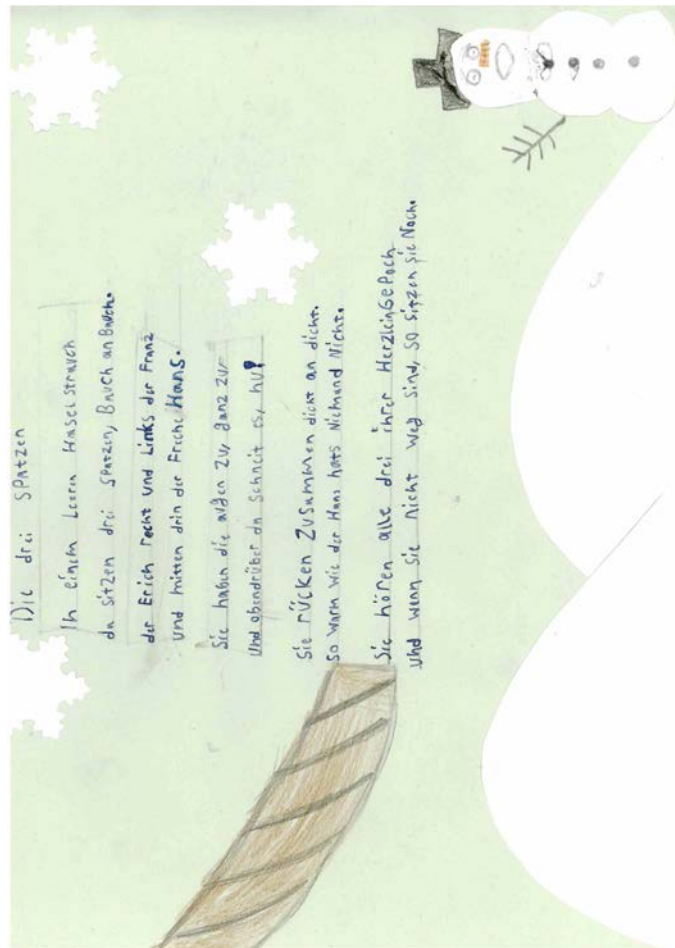 Die drei SPatzen
In einem Leeren Hasel strauch
da sitzen drei SPatzen, Bauch an Bauch.
der Erich recht und Links der Franz
und mitten drin der Freche Hans.
Sie haben die augen zu, ganz zu,
und obendrüber da Schneit es, hu!
Sie rücken zusammen dicht an dicht.
so warm wie der Hans hats Niemand Nicht.
Sie hören alle drei ihrer Herzlein GePoch
und wenn sie nicht weg sind, so sitzen sie Noch.